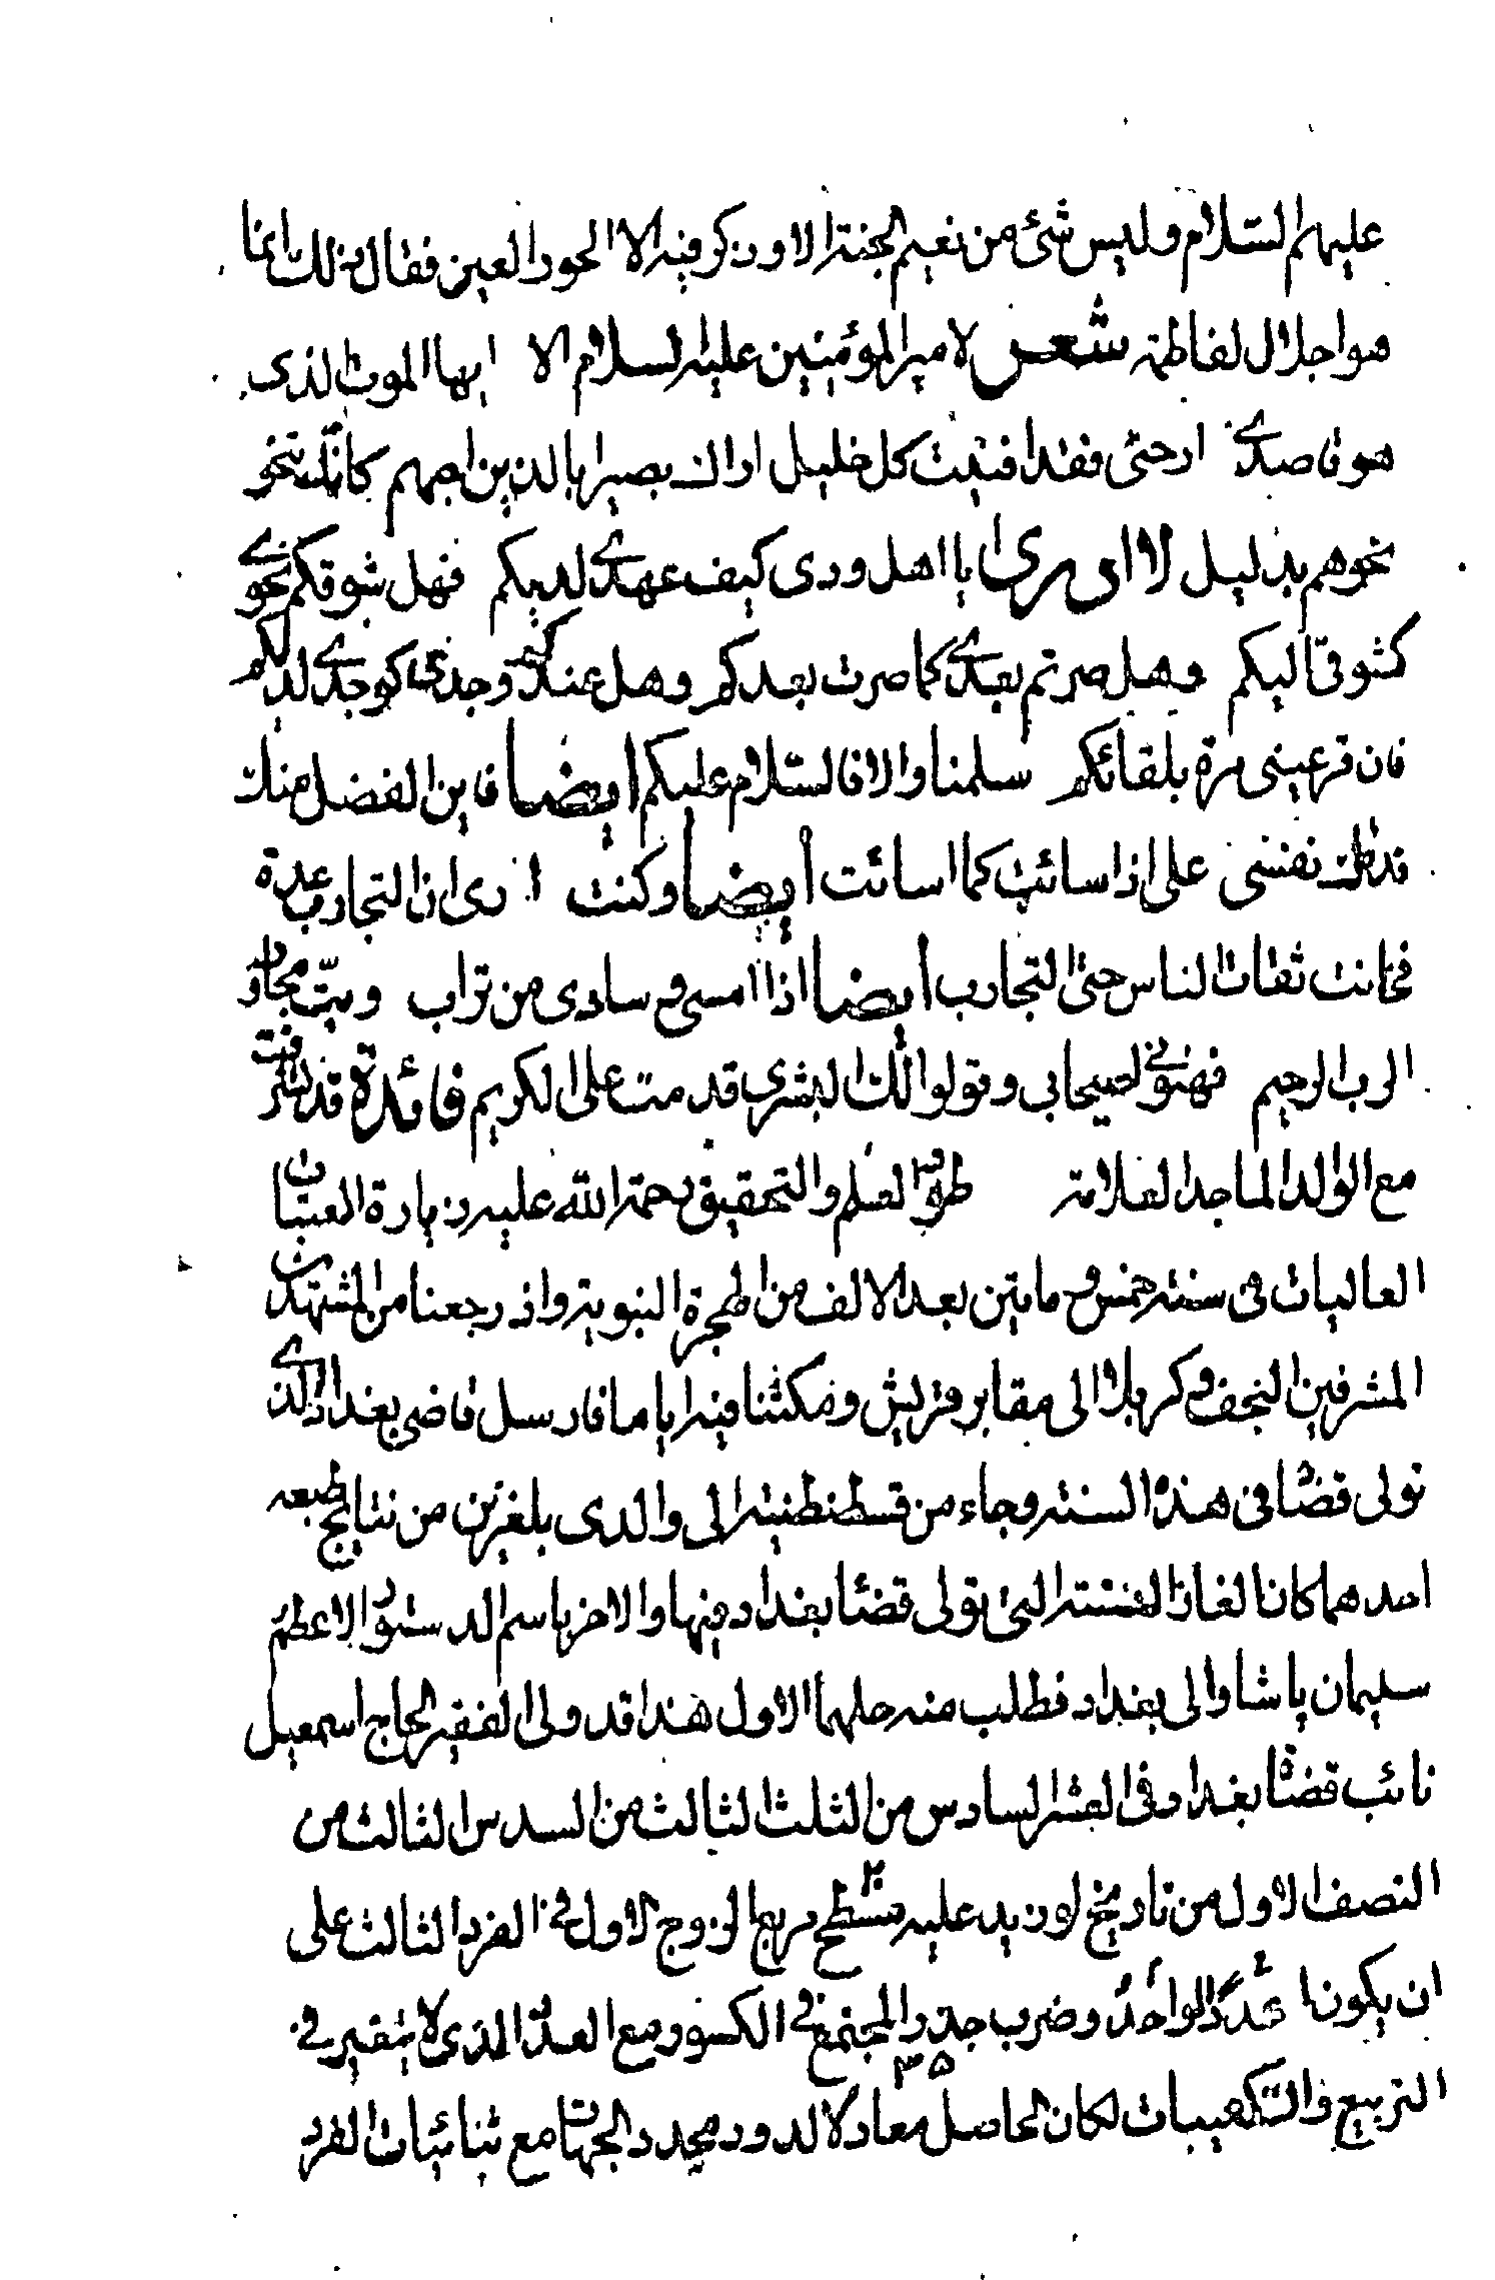 عليهم السّلام وليس شئ من نعيم الجنة الا وذكر فيه الا الحور العين فقال ذلك انما
هو اجلال لفاطمة شعر لامير المؤمنين عليه السلام الا ايها الموت الذى
هو قاصدي ارحنى فقد افنيت كل خليل اراك بصيرا بالذين احبهم كانّك تنحو
نحوهم بدليل لااى رى يا اهل ودى كيف عهدي لديكم فهل شوقكم نحوي
كشوقى اليكم وهل صرتم بعدي كما صرت بعدكم وهل عندكم وجدى كوجدي لديكم
فان قر عينى مرة بلقائكم سلمنا والا فالسّلام عليكم ايضا فاين الفضل منك
فدتك نفسى على اذا سائت كما اسائت ايضا وكنت ارى ان التجارب عدة
فخانت ثقات الناس حتى التجارب ايضا اذا امسى وسادى من تراب وبتّ مجاور
الرب الرحيم فهنونى اصيحابى وقولوا لك البشرى قدمت على الكريم فائدة قد تشرفت
مع الوالد الماجد العلامة طود العلم والتحقيق رحمة الله عليه بزيارة العتبات
العاليات فى سنة خمس و مايتين بعد الالف من الهجرة النبوية واذ رجعنا من المشهدين
المشرفين النجف و كربلا الى مقابر قريش ومكثنا فيه اياما فارسل قاضى بغداد الذي
تولى قضا فى هذه السنة وجاء من قسطنطنية الى والدى بلغزين من نتايج طبعه
احدهما كان الغاز السنة التى تولى قضا بغداد فيها والاخر باسم الدستور الاعظم
سليمان پاشا والى بغداد فطلب منه حلهما الاول هذا قد ولى الفقير الحاج اسمعيل
نائب قضا بغداد فى العشر السادس من الثلث الثالث من السدس الثالث من
النصف الاول من تاريخ لو زيد عليه مسطح مربع الزوج الاول فى الفرد الثالث على
ان يكونا عدد الواحد وضرب جذر المجتمع فى الكسور مع العدد الذى لا يتغير فى
۳۵
التربيع والتكعيبات لكان الحاصل معادلا لدور محدد الجهات مع ثنائيات الفرد